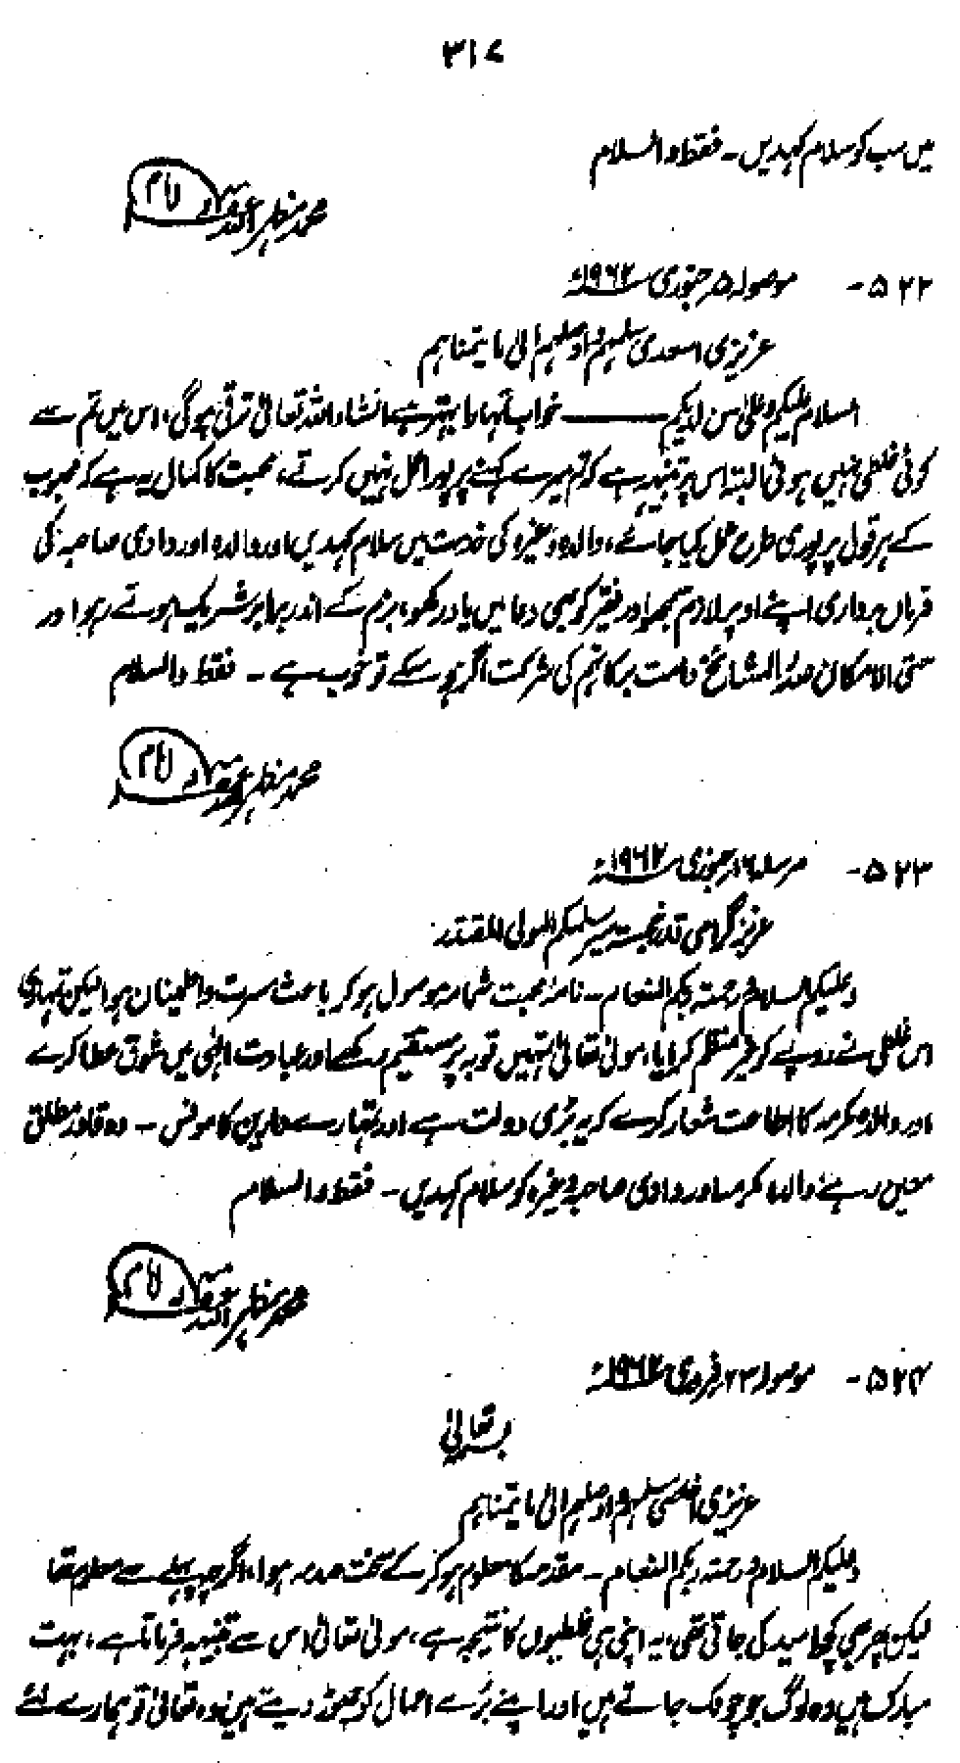 ۳۱۷
میں سب کو سلام کہدیں۔ فقط والسلام
محمد مظہر اللہ غفرلہ امام
۵۲۲۔ موصولہ ۵ر جنوری ۱۹۶۲ء
عزیزی اسعدی سلہم واوصلہم الیٰ ما یتمناہم
السلام علیکم وعلیٰ من لدیکم ــــــ خواب تمہارا بہتر ہے انشاء اللہ تعالیٰ ترقی ہوگی، اس میں تم سے
کوئی غلطی نہیں ہوئی البتہ اس پر تنبیہ ہے کہ تم میرے کہنے پر پورا عمل نہیں کرتے، محبت کا کمال یہ ہے کہ محبوب
کے ہر قول پر پوری طرح عمل کیا جائے، والدہ وغیرہ کی خدمت میں سلام کہدیں اور والدہ اور دادی صاحبہ کی
فرماں برداری اپنے اوپر لازم سمجھو اور فقیر کو بھی دعا میں یاد رکھو، بزم کے اندر برابر شریک ہوتے رہو اور
حتی الامکان صدر المشائخ دامت برکاتہم کی شرکت اگر ہو سکے تو خوب ہے۔ فقط والسلام
محمد مظہر اللہ غفرلہ امام
۵۲۳۔ مرسلہ ۱۶ر جنوری ۱۹۶۲ء
عزیز گرامی قدر خجستہ سیر سلمکم المولی المقتدر
وعلیکم السلام ورحمتہ ربکم المنعام۔ نامۂ محبت شمامہ موصول ہو کر باعث مسرت واطمینان ہوا لیکن تمہاری
اس غلطی نے روپے کو غیر منظم کرایا، مولیٰ تعالیٰ تمہیں توبہ پر مستقیم رکھے اور عبادت الٰہی میں شوق عطا کرے
اور والدہ مکرمہ کا اطاعت شعار کردے کہ یہ بڑی دولت ہے اور تمہارے دارین کا مونس۔ وہ قادر مطلق
معین رہے والدہ مکرمہ اور دادی صاحبہ وغیرہ کو سلام کہدیں۔ فقط والسلام
محمد مظہر اللہ غفرلہ امام
۵۲۴۔ موصولہ ۲۳ر فروری ۱۹۶۲ء
بسمہ تعالیٰ
عزیزی اخلصی سلہم واوصلہم الیٰ ما یتمناہم
وعلیکم السلام ورحمتہ ربکم المنعام۔ مقدمہ کا معلوم ہو کر کے سخت صدمہ ہوا، اگرچہ پہلے سے معلوم تھا
لیکن پھر بھی کچھ امید کی جاتی تھی، یہ اپنی ہی غلطیوں کا نتیجہ ہے، مولیٰ تعالیٰ اس سے تنبیہہ فرماتا ہے، بہت
مبارک ہیں وہ لوگ جو چونک جاتے ہیں اور اپنے بُرے اعمال کو چھوڑ دیتے ہیں وہ تعالیٰ تو ہمارے لئے